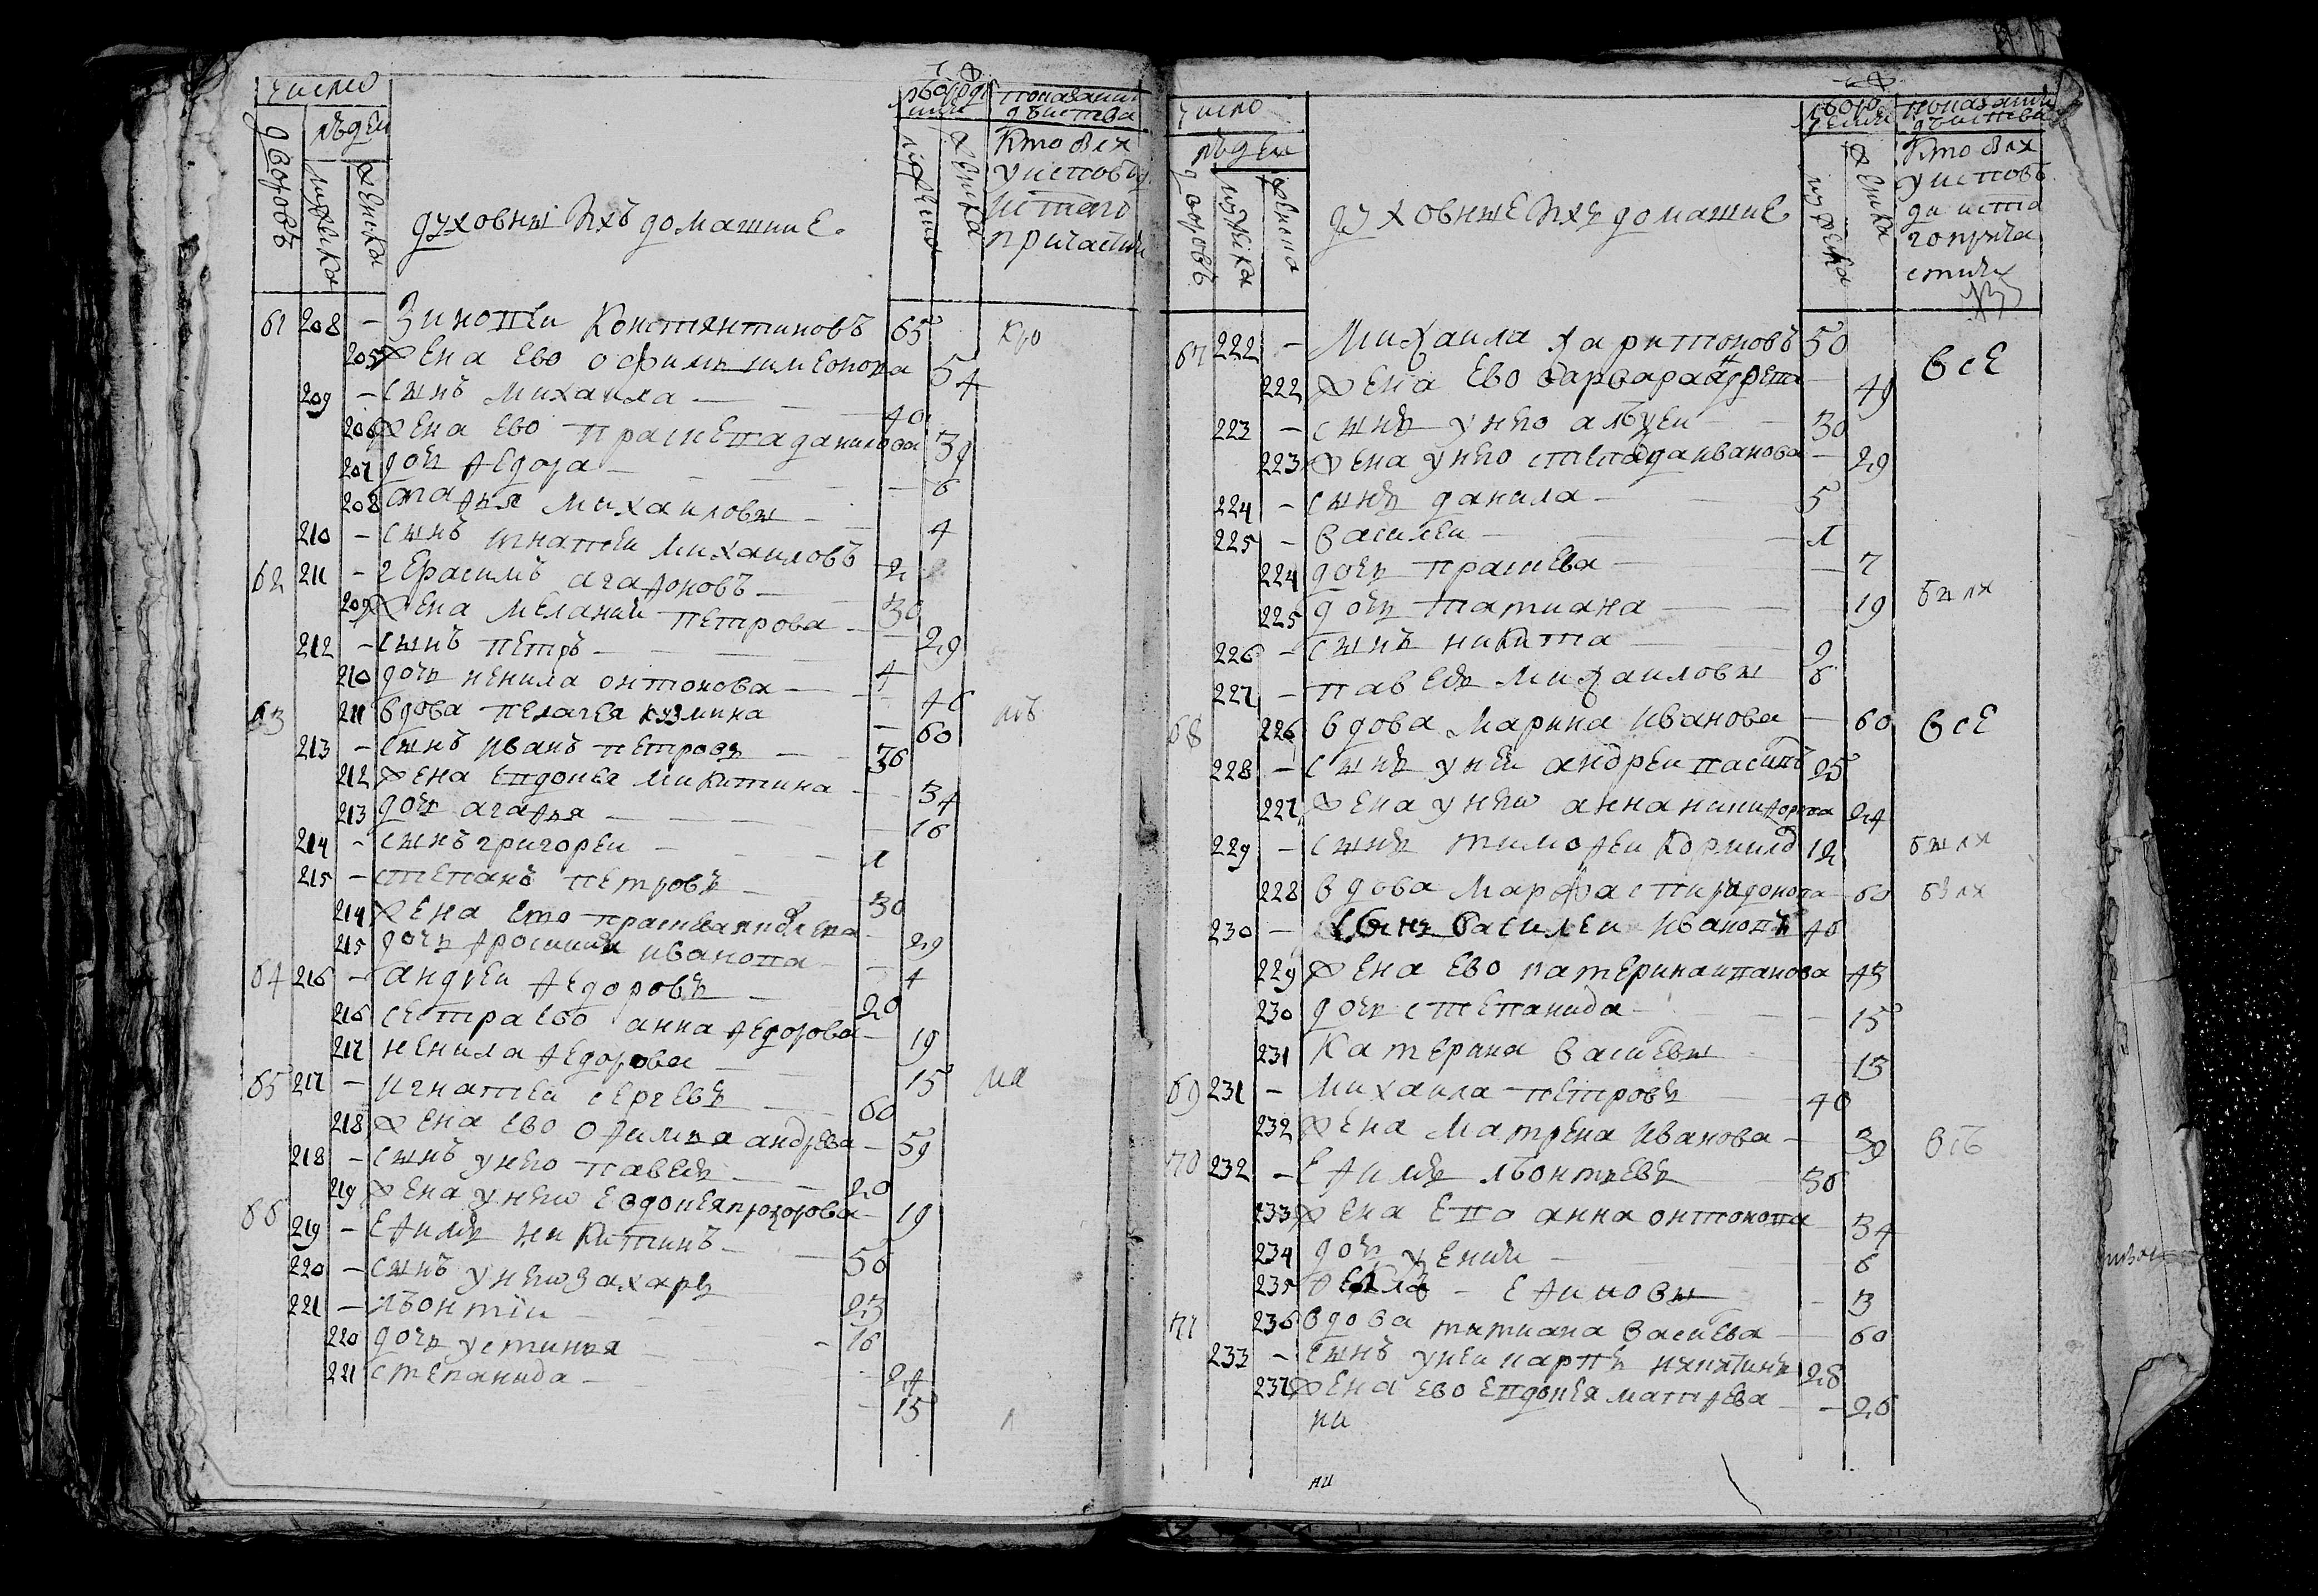 число
людеи
дворовъ
мужеска
женска
духовныи ихъ домашние.
мужеска
женска
показани
действа
кто былх
у исповед
и стаго
причастия
61 208 – Зиновеи Константиновъ 65
205 жена ево офимья симеонова 54
209 – сынъ михаила – 40
206 жена ево прасковя данилова 39
207 дочь федора – 6
208 агафья михаиловы – 4
210 – сынъ игнатеи михаиловъ 2
62 211 – герасимъ агафоновъ – 30
209 жена мелания петрова – 29
212 – сынъ петръ – 4
210 дочь ненила онтонова – 46
63 211 вдова пелагея кузмина – 60
213 – сынъ иванъ петровъ – 36
212 жена евдокея микитина – 34
213 дочь агафья – 16
214 – сынъ григореи – 1
215 – степанъ петровъ – 30
214 жена ево прасковя – 29
215 дочь фросиния иванова – 4
64 216 – андреи федоровъ – 20
216 сестра ево анна федорова – 19
217 ненила федорова – 15
65 217 – игнатеи сергевъ – 60
218 жена ево офимья андрева – 59
218 – сынъ у него павелъ – 20
219 жена у него евдокея прохорова – 19
66 219 – ефимъ никитинъ – 50
220 – сынъ у него захаръ 23
221 – лвонтіи – 16
220 дочь устинья – 24
221 степанида – 15
число
людеи
дворовъ
мужска
женска
духовные ихъ домашние
мужеска
женска
показании
действа
кто былх
у испове
ди и ста
го прича
стиях
67 222 – Михаила харитоновъ 50 все
222 жена ево варвара – 49
223 – сынъ у него алѣѯеи – 30
223 жена у него степанида иванова – 29
224 – сынъ данила – 5
225 – василеи – 1
224 дочь прасковя – 7
225 дочь татиана – 19 былх
226 – сынъ никита 9
227 – павелъ михаиловы 6
68 226 вдова марина иванова – 60 все
228 – сынъ у неи андреи 25
227 жена у него анна никифорова 24
229 – сынъ тимофеи 12 былх
228 вдова марфа спиридонова – 60 былх
230 – сынъ василеи ивановъ 46
229 жена ево катерина иванова 43
230 дочь степанида – 15
231 катерина василевы 13
69 231 – михаила петровъ 40
232 жена матрена иванова – 39 все
70 232 – ефимъ лвонтьевъ 36
233 жена ево анна онтонова 34
234 дочь ѯения – 6
235 фекла – ефимовы – 3
71 236 вдова татиана василева – 60
233 – сынъ у неи карпъ никитинъ 28
237 жена ево евдокея матфева – 26
ни
ни